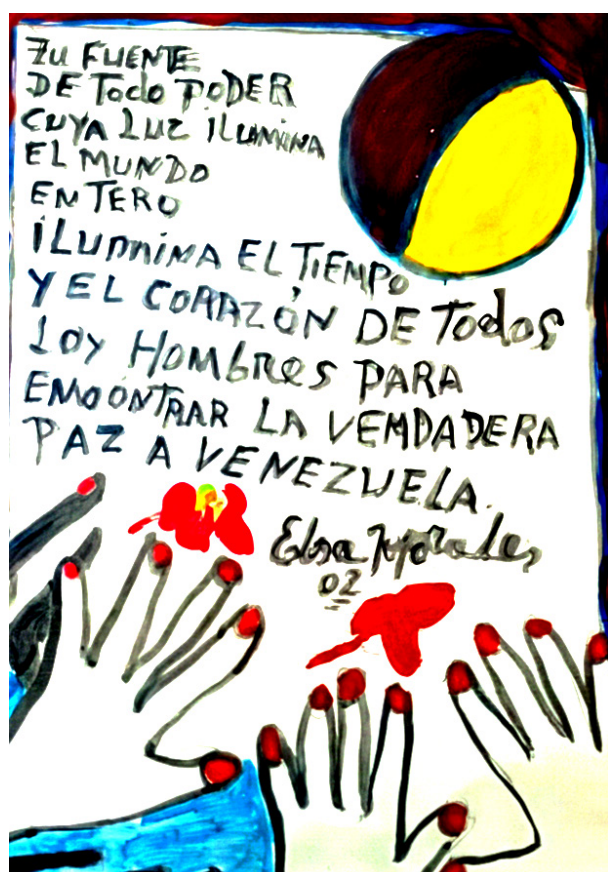 ZU FUENTE
DE TODO PODER
CUYA LUZ ILUMINA
EL MUNDO
ENTERO
ILUMINA EL TIEMPO
Y EL CORAZÓN DE TODOS
LOY HOMBRES PARA
EMOONTRAR LA VEMDADERA
PAZ A VENEZUELA.
Elsa Morales
02